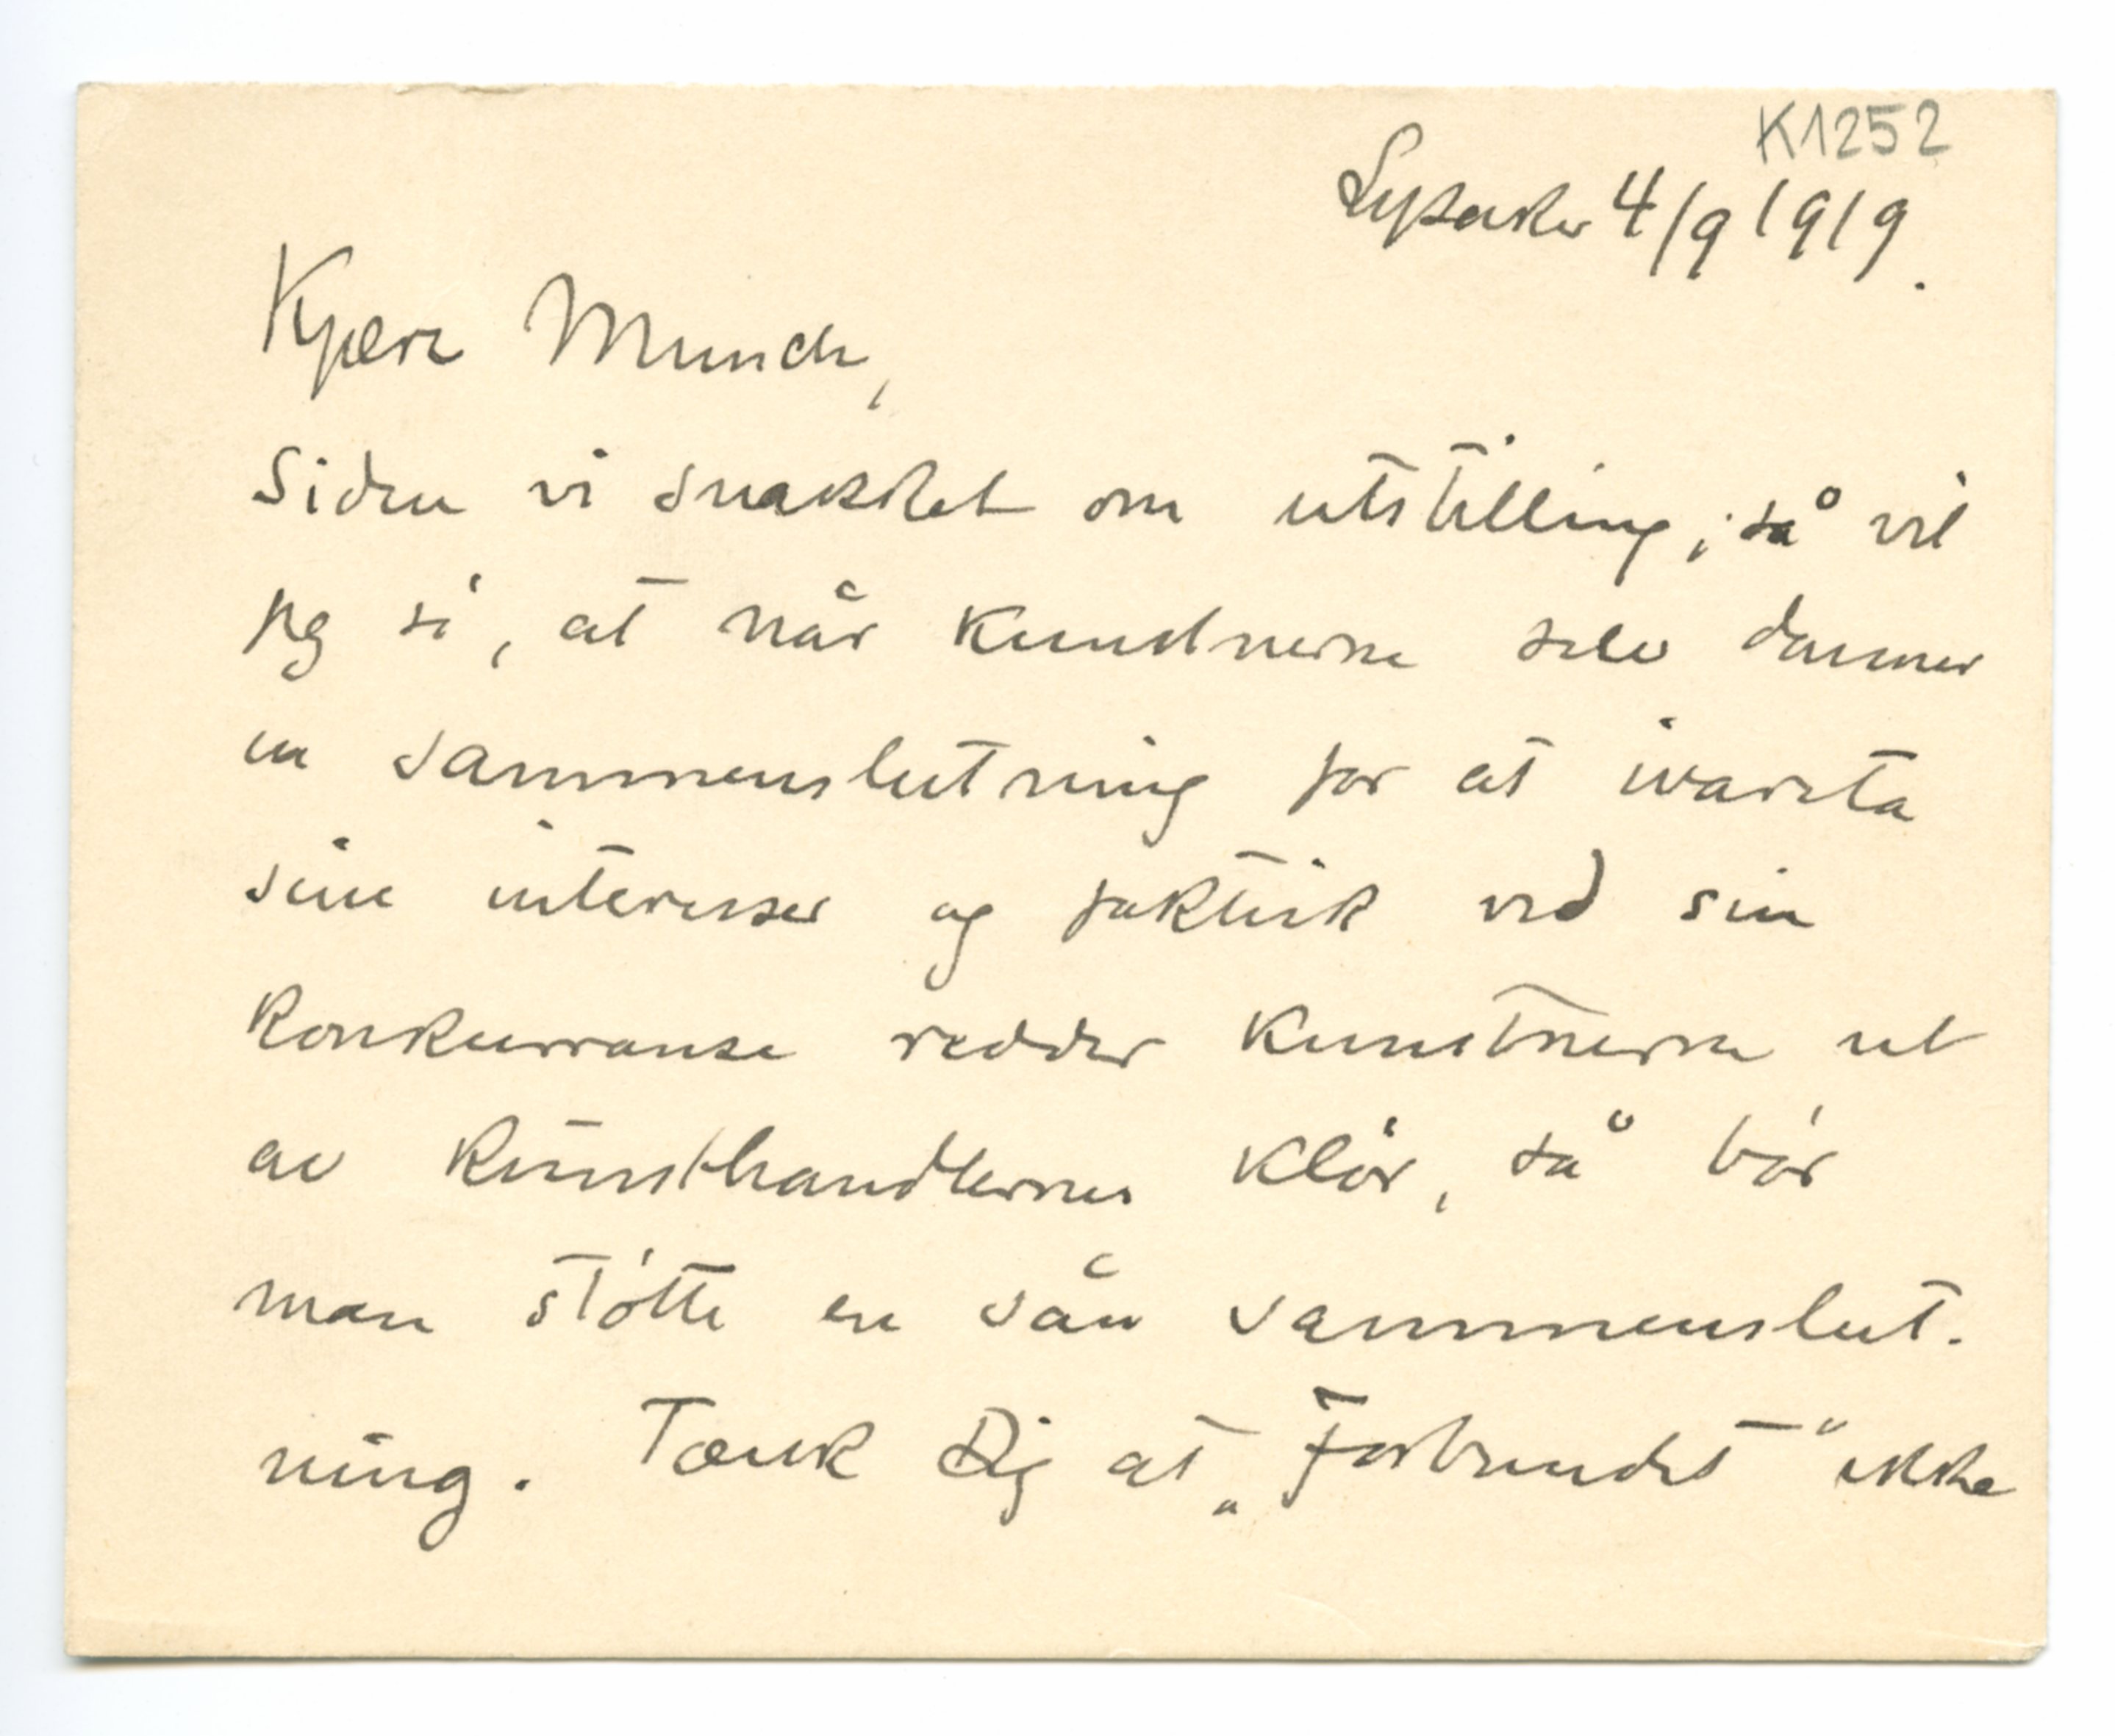 K1252
Lysaker 4/9 1919.
Kjære Munch,
Siden vi snakket om utstilling, så vil
jeg si, at når kunstnerne selv danner
en sammenslutning for at ivareta
sine interesser og faktisk ved sin
konkurranse redder kunstnerne ut
av kunsthandlernes klør, så bør
man støtte en sån sammenslut-
ning. Tænk Dig at „Forbundet" ikke